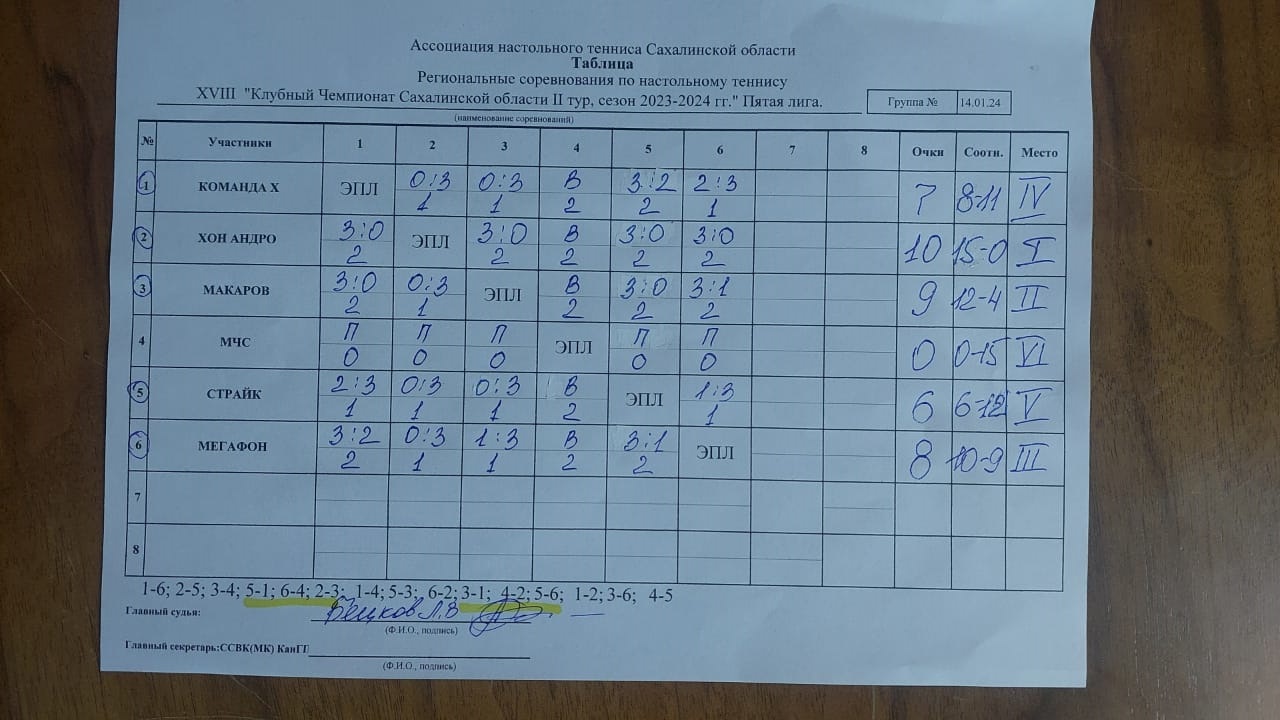 Ассоциация настольного тенниса Сахалинской области
Таблица
Региональные соревнования по настольному теннису
XVIII "Клубный Чемпионат Сахалинской области II тур, сезон 2023-2024 гг." Пятая лига.
Группа № 14.01.24
(наименование соревнований)
№ Участники 1 2 3 4 5 6 7 8 Очки Соотн. Место
1 КОМАНДА X ЭПЛ 0:3 0:3 В 3:2 2:3 7 8-11 IV
1 1 2 2 1
2 ХОН АНДРО 3:0 ЭПЛ 3:0 В 3:0 3:0 10 15-0 I
2 2 2 2 2
3 МАКАРОВ 3:0 0:3 ЭПЛ В 3:0 3:1 9 12-4 II
2 1 2 2 2
4 МЧС П П П ЭПЛ П П 0 0-15 VI
0 0 0 0 0
5 СТРАЙК 2:3 0:3 0:3 В ЭПЛ 1:3 6 6-12 V
1 1 1 2 1
6 МЕГАФОН 3:2 0:3 1:3 В 3:1 ЭПЛ 8 10-9 III
2 1 1 2 2
7
8
1-6; 2-5; 3-4; 5-1; 6-4; 2-3; 1-4; 5-3; 6-2; 3-1; 4-2; 5-6; 1-2; 3-6; 4-5
Главный судья:
(Ф.И.О., подпись)
Главный секретарь:ССВК(МК) КанГГ
(Ф.И.О., подпись)